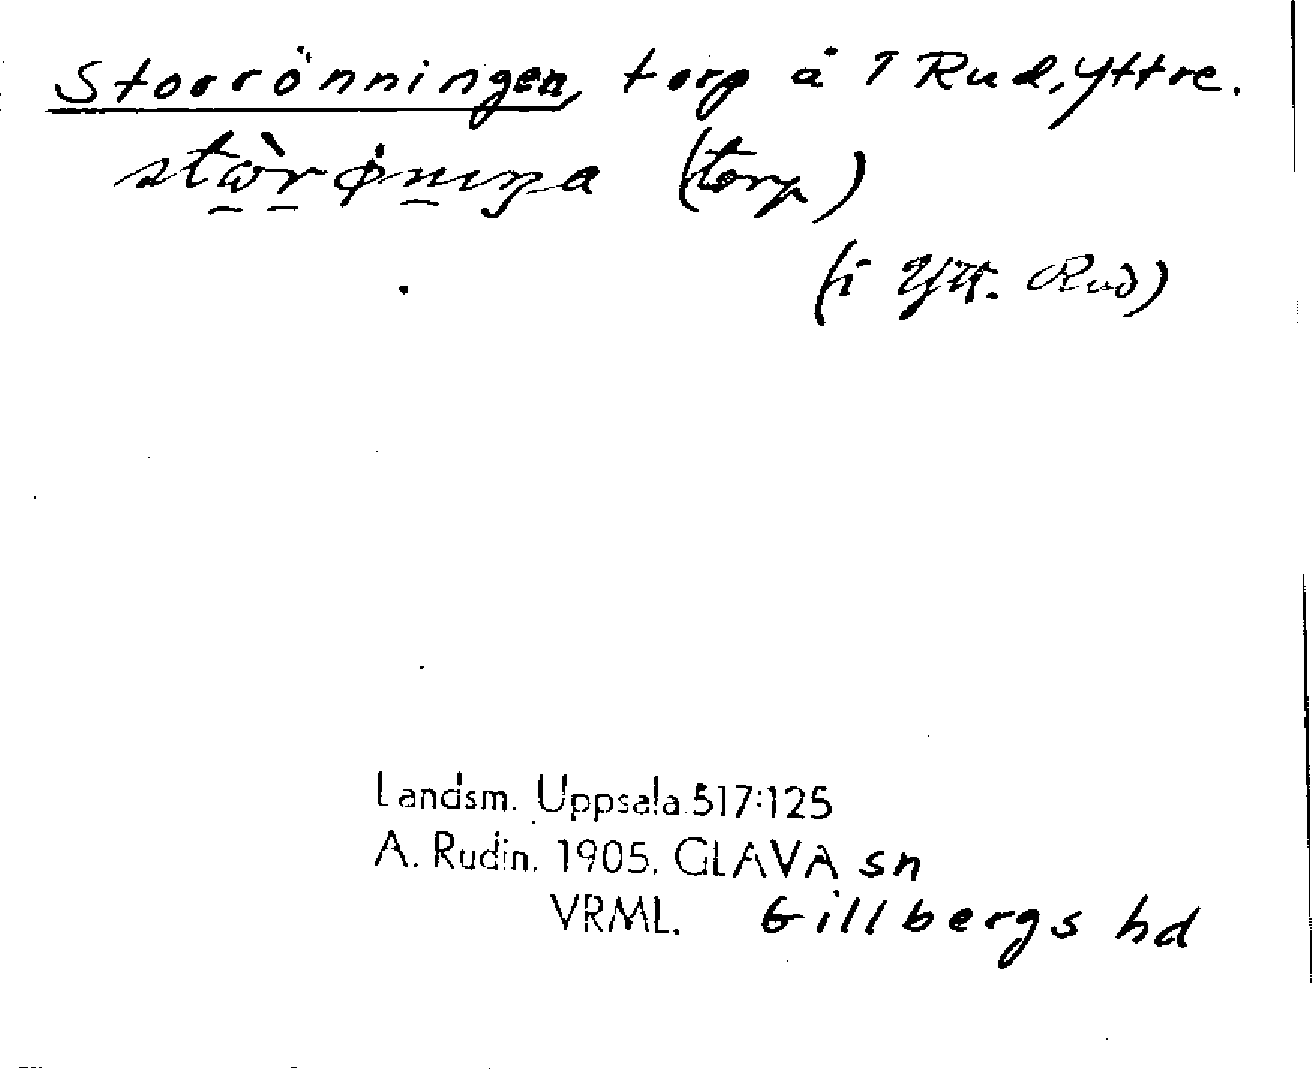 Storrönningen, torp å 1 Rud, Yttre.
(torp)
(i Ytt. Rud)
Landsm. Uppsala 517:125
A. Rudin. 1905. GLAVA sn
VRML. Gillbergs hd